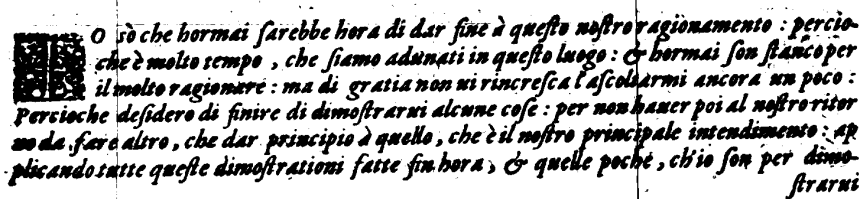 IO sò che hormai ſarebbe hora di dar fine à queſto noſtro ragionamento : percio-
che è molto tempo , che ſiamo adunati in queſto luogo : & hormai ſon ſtanco per
il molto ragionare : ma di gratia non ui rincreſca l'aſcoltarmi ancora un poco :
Percioche deſidero di finire di dimoſtrarui alcune coſe : per non hauer poi al noſtro ritor
no da fare altro , che dar principio à quello , che è il noſtro principale intendimento : ap
plicando tutte queſte dimoſtrationi fatte fin hora , & quelle poche , ch'io ſon per dimo-
ſtrarui